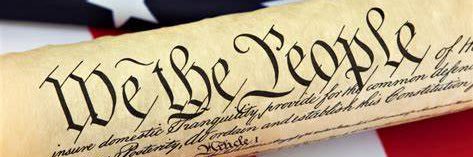 We the People of th
insure domestic Tranquility, provide for the common defen
Posterity, do ordain and establish this Constitution f
Article 1